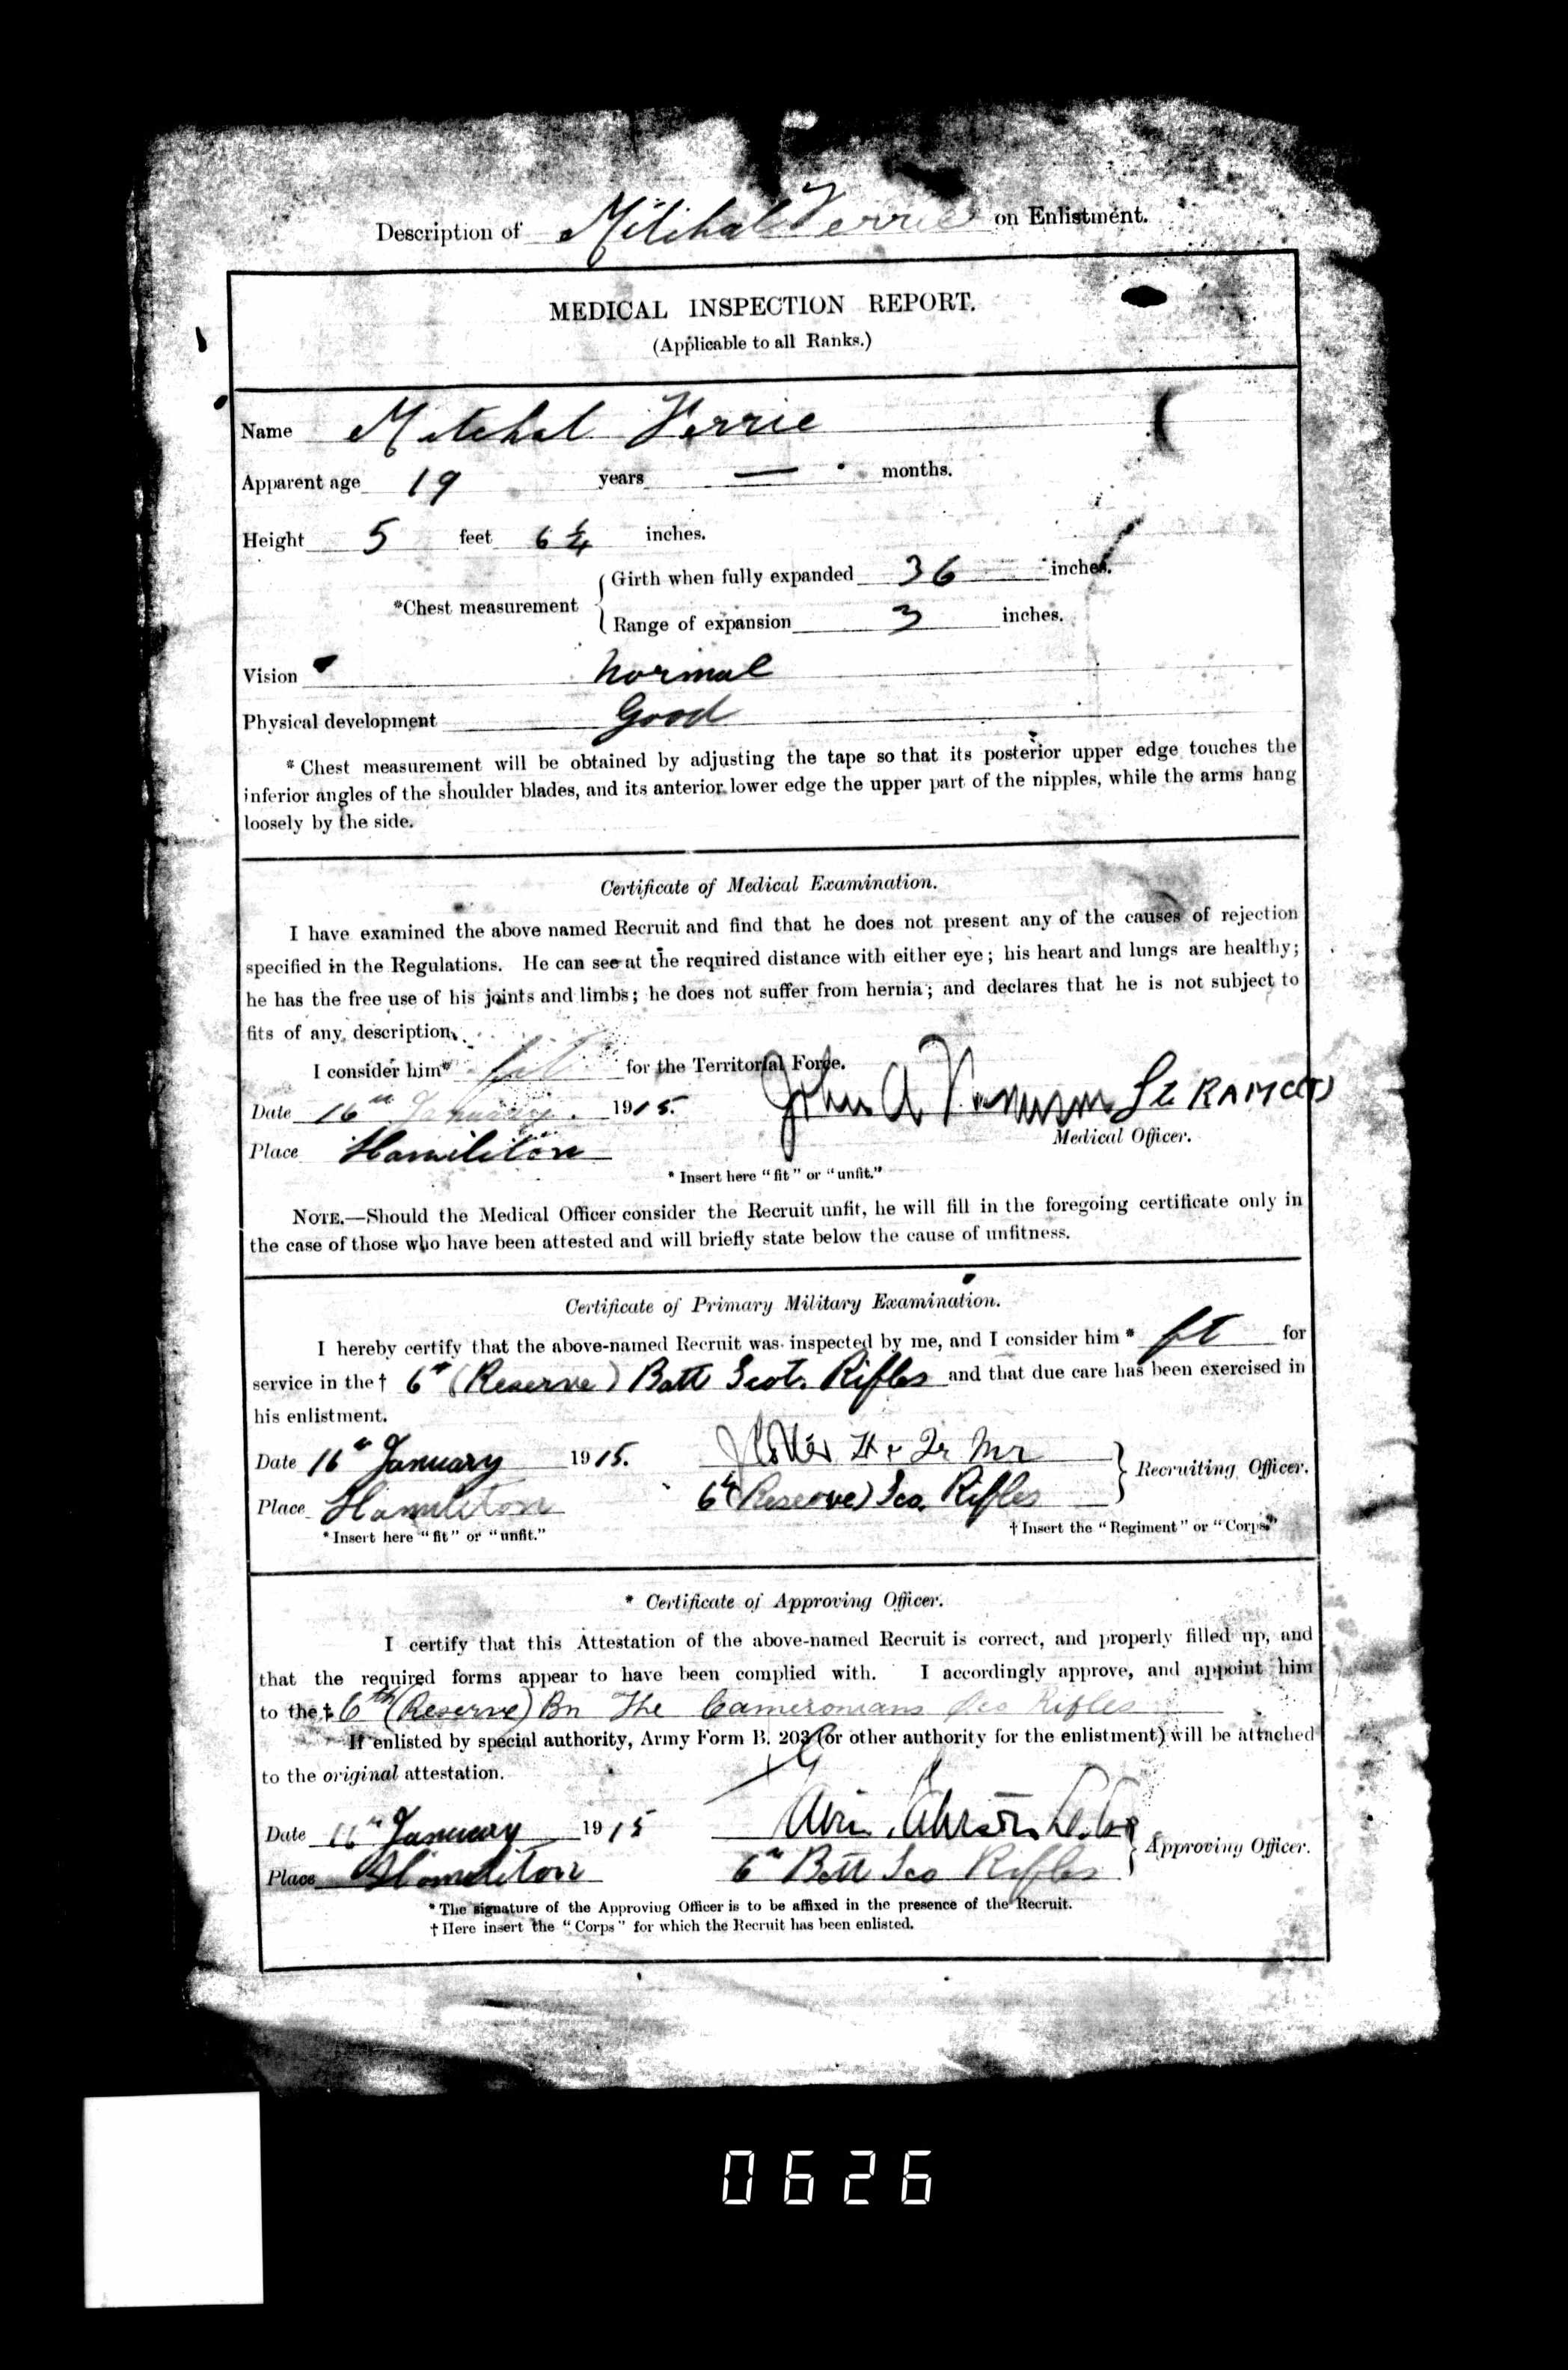 Description of Mitchal Verrie on Enlistment.
MEDICAL INSPECTION REPORT.
(Applicable to all Ranks.)
Name Mitchal Verrie
Apparent age 19 years — months.
Height 5 feet 6 1/4 inches.
*Chest measurement { Girth when fully expanded 36 inches.
Range of expansion 3 inches.
Vision Normal
Physical development Good
* Chest measurement will be obtained by adjusting the tape so that its posterior upper edge touches the
inferior angles of the shoulder blades, and its anterior lower edge the upper part of the nipples, while the arms hang
loosely by the side.
Certificate of Medical Examination.
I have examined the above named Recruit and find that he does not present any of the causes of rejection
specified in the Regulations. He can see at the required distance with either eye; his heart and lungs are healthy;
he has the free use of his joints and limbs; he does not suffer from hernia; and declares that he is not subject to
fits of any description.
I consider him* fit for the Territorial Force.
Date 16th January. 1915. John A Lt RAMC(T)
Medical Officer.
Place Hamilton
* Insert here "fit" or "unfit."
NOTE.—Should the Medical Officer consider the Recruit unfit, he will fill in the foregoing certificate only in
the case of those who have been attested and will briefly state below the cause of unfitness.
Certificate of Primary Military Examination.
I hereby certify that the above-named Recruit was inspected by me, and I consider him * fit for
service in the † 6th (Reserve) Batt Scot. Rifles and that due care has been exercised in
his enlistment.
Date 16th January 1915. Lt & Qr Mr
} Recruiting Officer.
Place Hamilton 6th (Reserve) Sco. Rifles
* Insert here "fit" or "unfit." † Insert the "Regiment" or "Corps."
* Certificate of Approving Officer.
I certify that this Attestation of the above-named Recruit is correct, and properly filled up, and
that the required forms appear to have been complied with. I accordingly approve, and appoint him
to the † 6th (Reserve) Bn The Cameronians Sco Rifles
If enlisted by special authority, Army Form B. 203 (or other authority for the enlistment) will be attached
to the original attestation.
Date 16th January 1915
} Approving Officer.
Place Hamilton 6th Batt Sco Rifles
* The signature of the Approving Officer is to be affixed in the presence of the Recruit.
† Here insert the "Corps" for which the Recruit has been enlisted.
0626